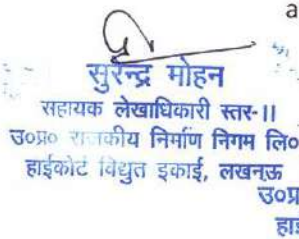 a
सुरेन्द्र मोहन
सहायक लेखाधिकारी स्तर-II
उ०प्र० राजकीय निर्माण निगम लि०
हाईकोर्ट विधुत इकाई, लखनऊ
उ०प्र
हाई